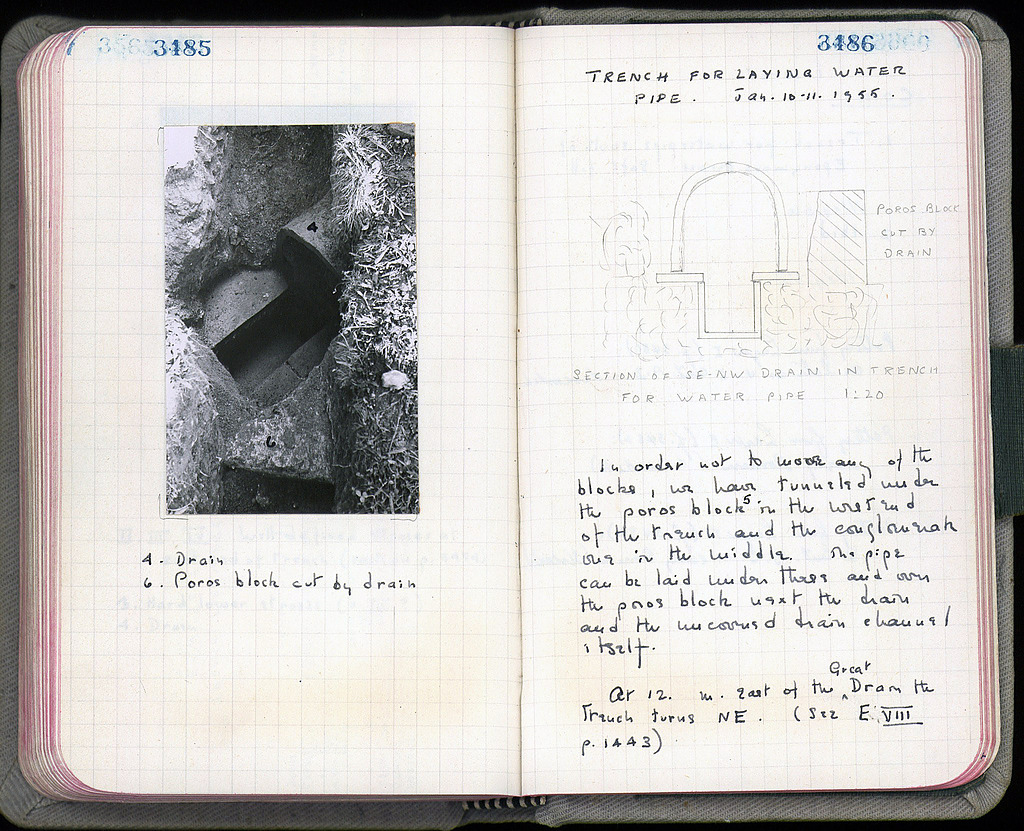 3485
4
6
4. Drain
6. Poros block cut by drain
3486
TRENCH FOR LAYING WATER
PIPE. Jan. 10-11. 1955.
POROS BLOCK
CUT BY
DRAIN
SECTION OF SE-NW DRAIN IN TRENCH
FOR WATER PIPE 1:20
In order not to move any of the
blocks, we have tunneled under
the poros blocks in the west end
of the trench and the conglomerate
one in the middle. The pipe
can be laid under these and over
the poros block next the drain
and the uncovered drain channel
itself.
Great
At 12. m. east of the ^ Drain the
Trench turns NE. (See E VIII
p. 1443)